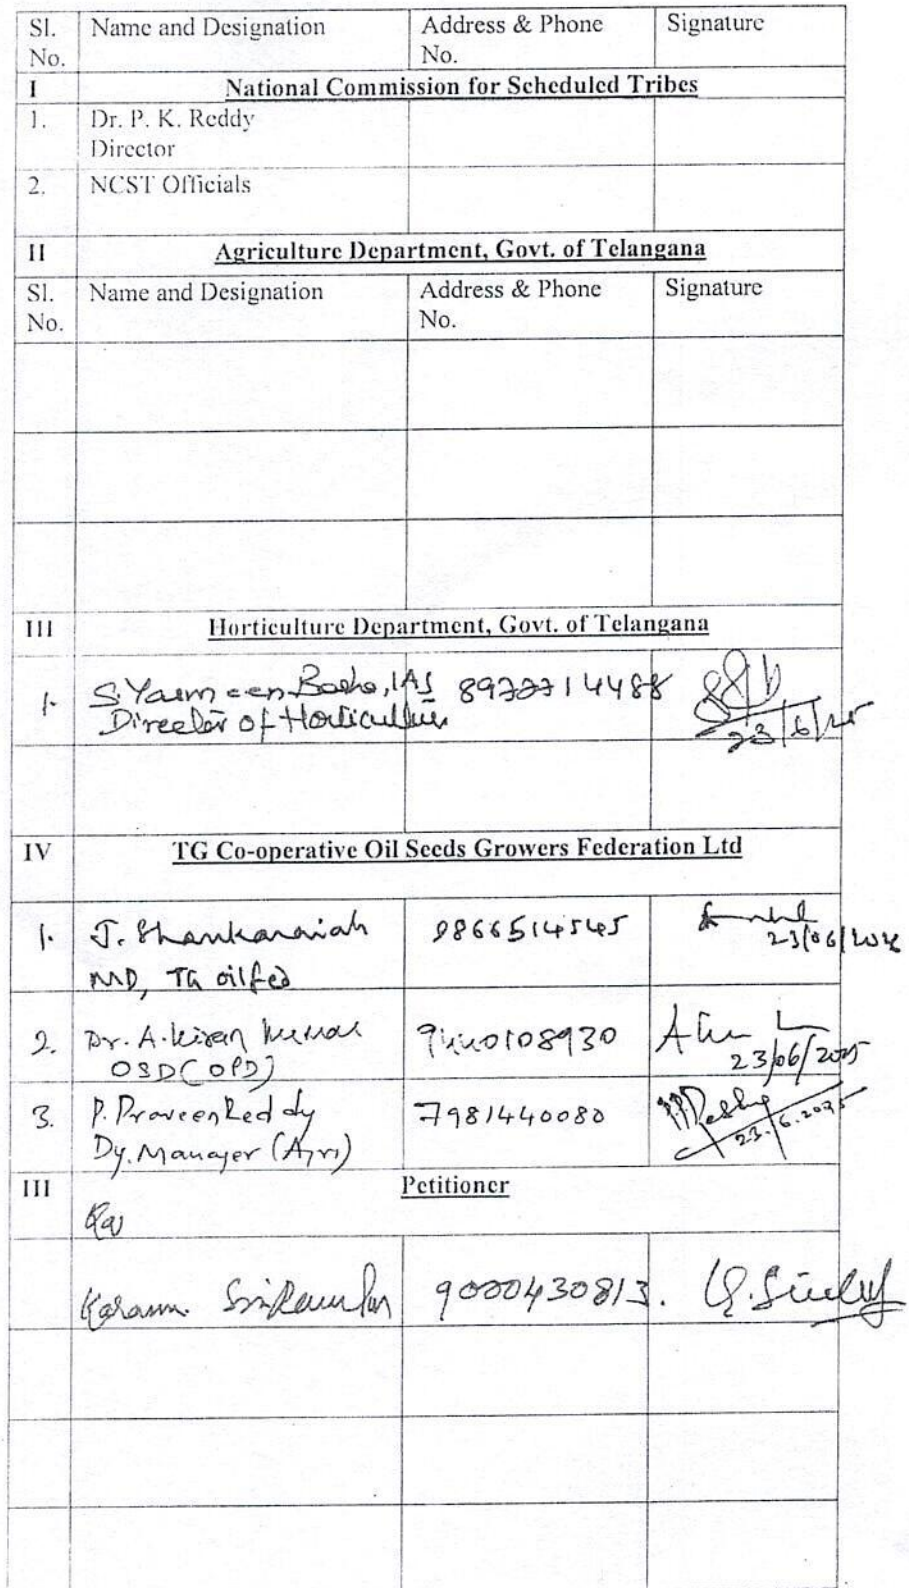 Sl. No. Name and Designation Address & Phone No. Signature
I National Commission for Scheduled Tribes
1. Dr. P. K. Reddy
Director
2. NCST Officials
II Agriculture Department, Govt. of Telangana
Sl. No. Name and Designation Address & Phone No. Signature
III Horticulture Department, Govt. of Telangana
1. S. Yasmeen Basha, IAS 8977714488
Director of Horticulture
23/6/25
IV TG Co-operative Oil Seeds Growers Federation Ltd
1. J. Shankaraiah 9866514545
MD, TG oilfed
23/06/2025
2. Dr. A. Kiran Kumar 9440108930
OSD (OPD)
23/06/2025
3. P. Praveen Reddy 7981440080
Dy. Manager (Agri)
23.6.2025
III Petitioner
Karam 9000430813.